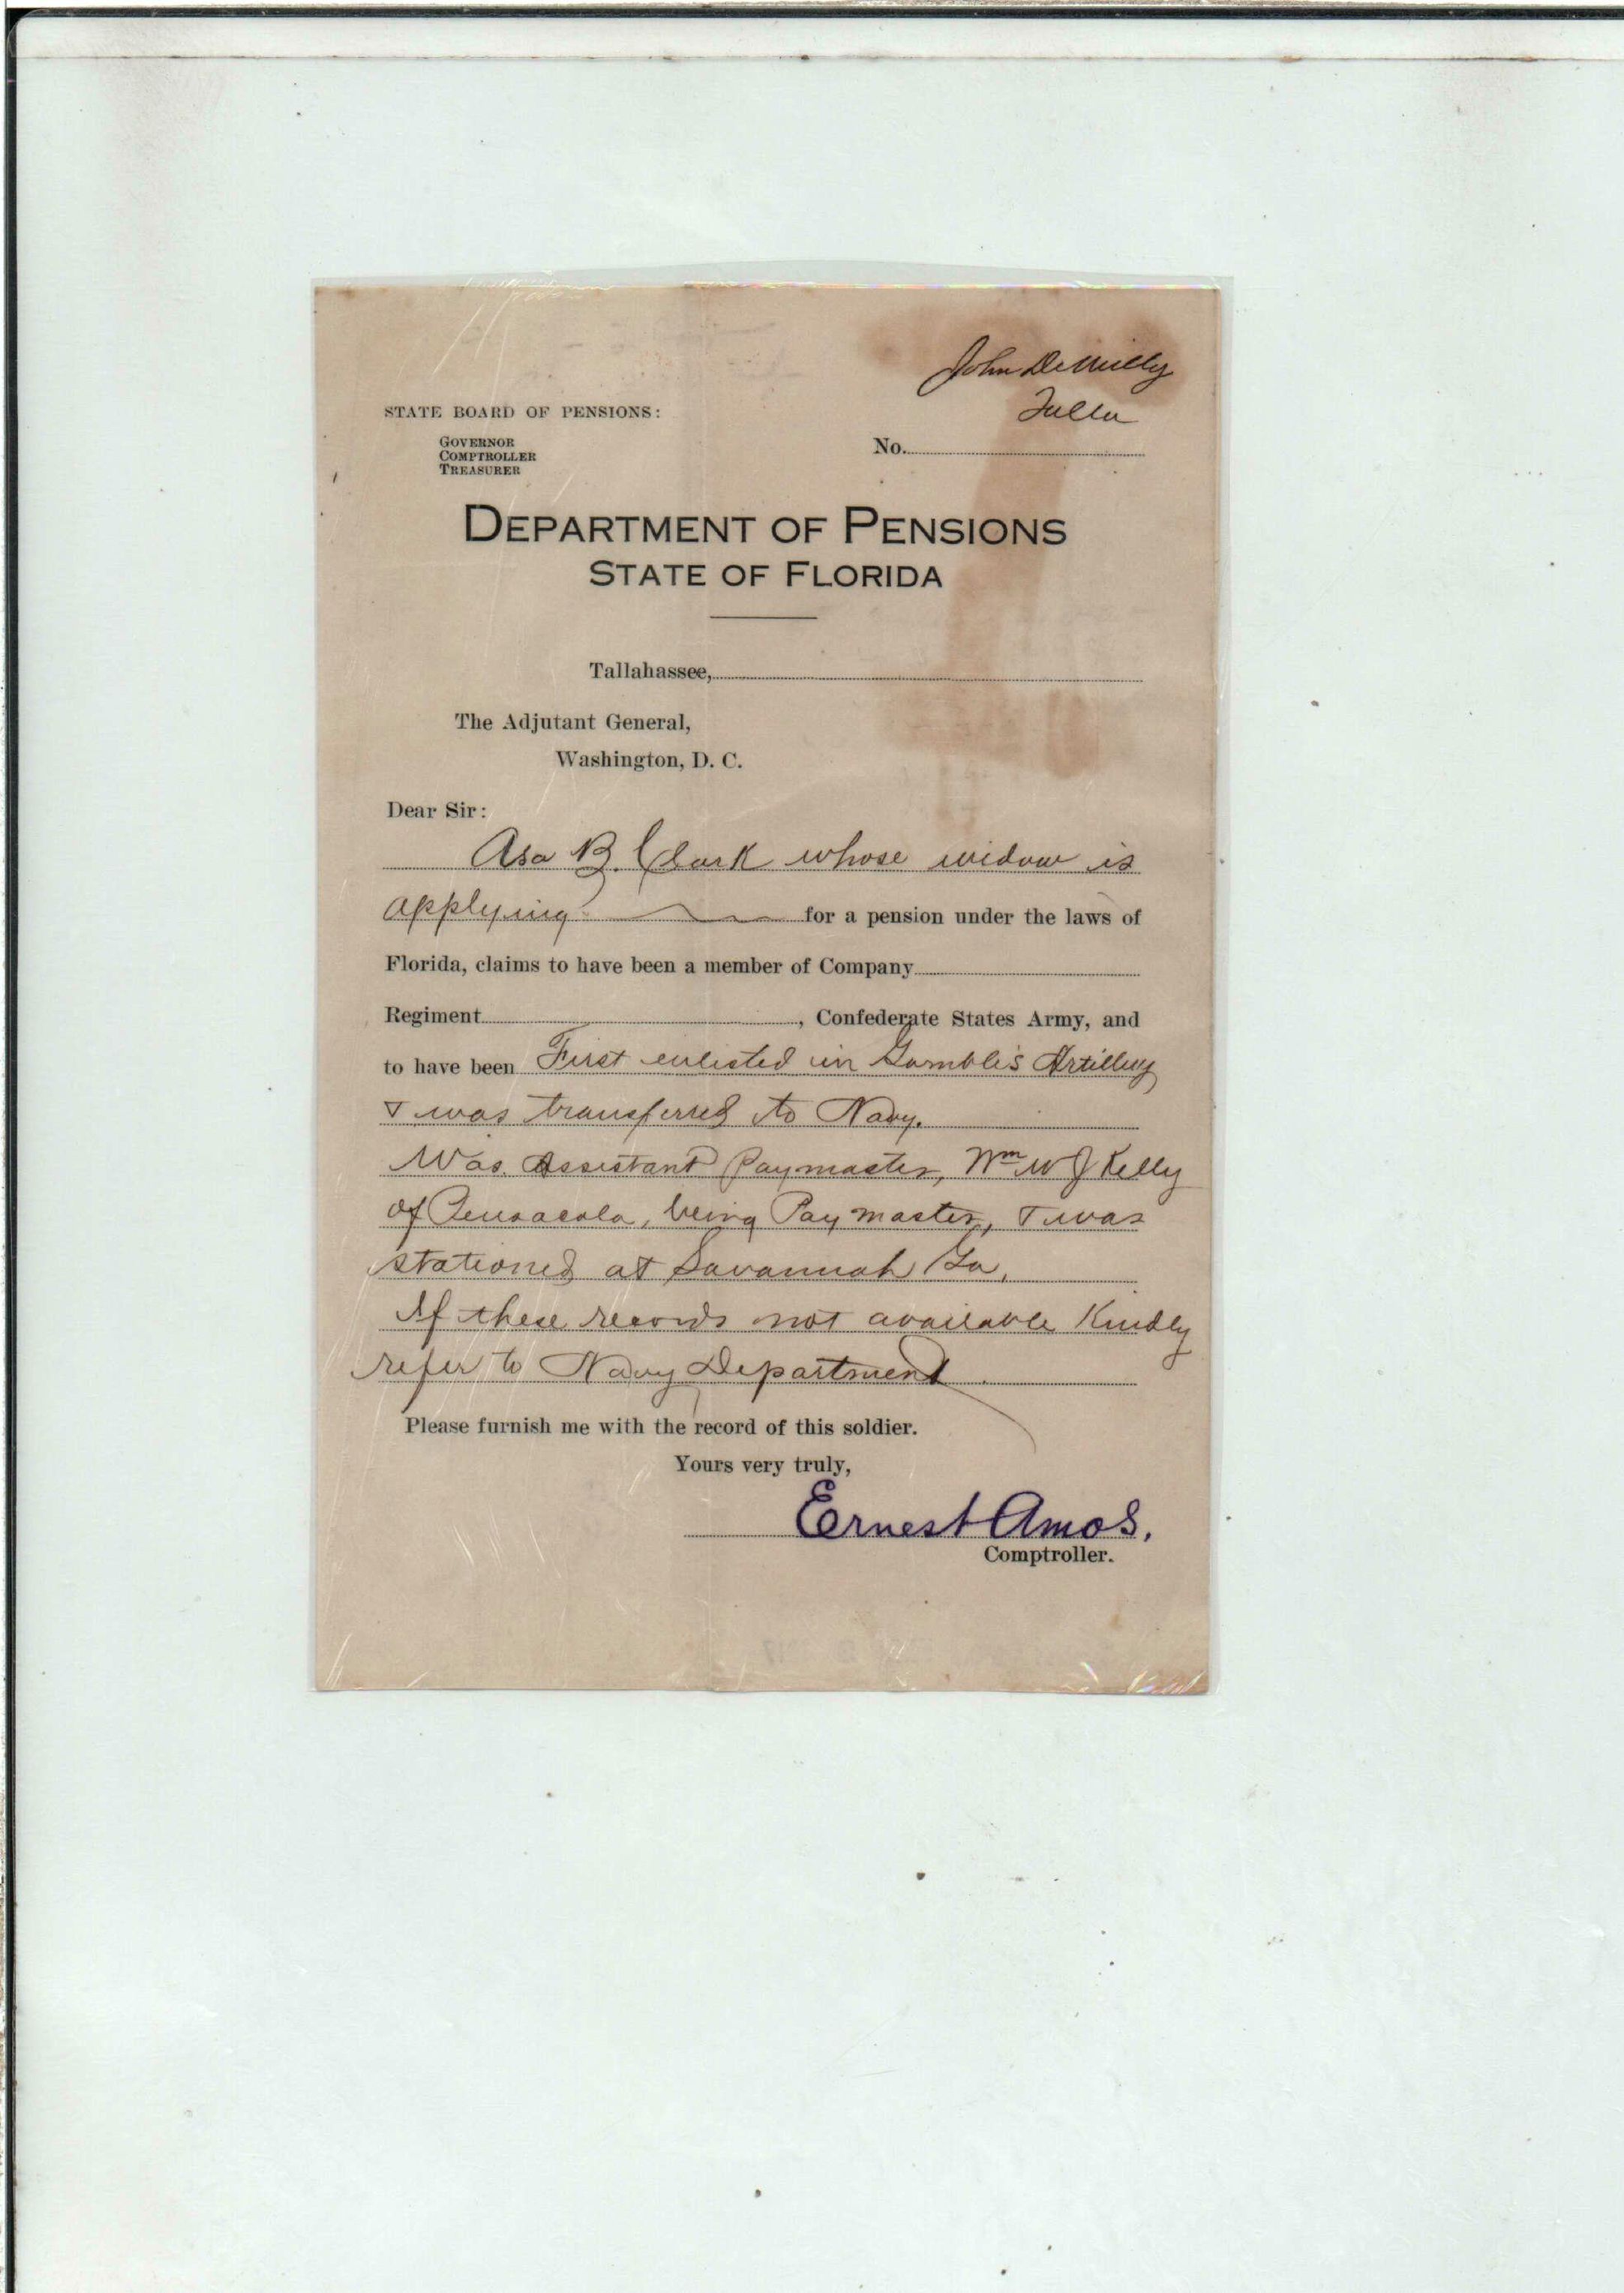 John DeMilly
Talla
STATE BOARD OF PENSIONS:
GOVERNOR
COMPTROLLER
TREASURER
No.
DEPARTMENT OF PENSIONS
STATE OF FLORIDA
Tallahassee,
The Adjutant General,
Washington, D. C.
Dear Sir:
Asa B. Clark whose widow is
applying for a pension under the laws of
Florida, claims to have been a member of Company
Regiment , Confederate States Army, and
to have been First enlisted in Gamble's Artillery
& was transferred to Navy.
Was Assistant Paymaster, Wm W J Kelly
of Pensacola, being Paymaster, & was
stationed at Savannah Ga,
If these records not available Kindly
refer to Navy Department.
Please furnish me with the record of this soldier.
Yours very truly,
Ernest Amos,
Comptroller.